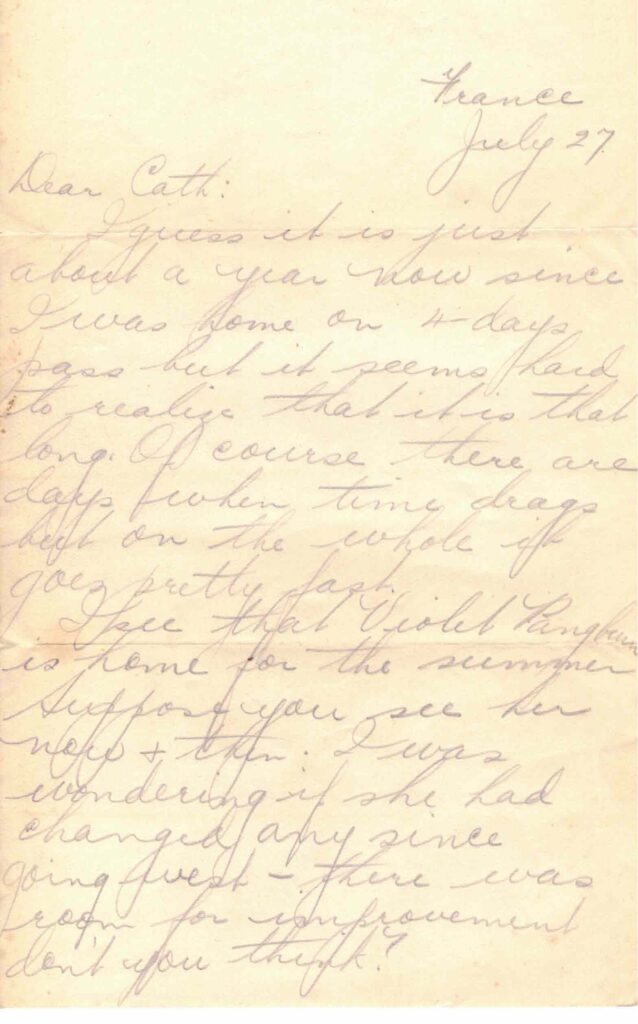 France
July 27.
Dear Cath:
I guess it is just
about a year now since
I was home on 4 days
pass but it seems hard
to realize that it is that
long. Of course there are
days when time drags
but on the whole it
goes pretty fast.
I see that Violet Pangburn
is home for the summer
suppose you see her
now + then. I was
wondering if she had
changed any since
going west - there was
room for improvement
don't you think?